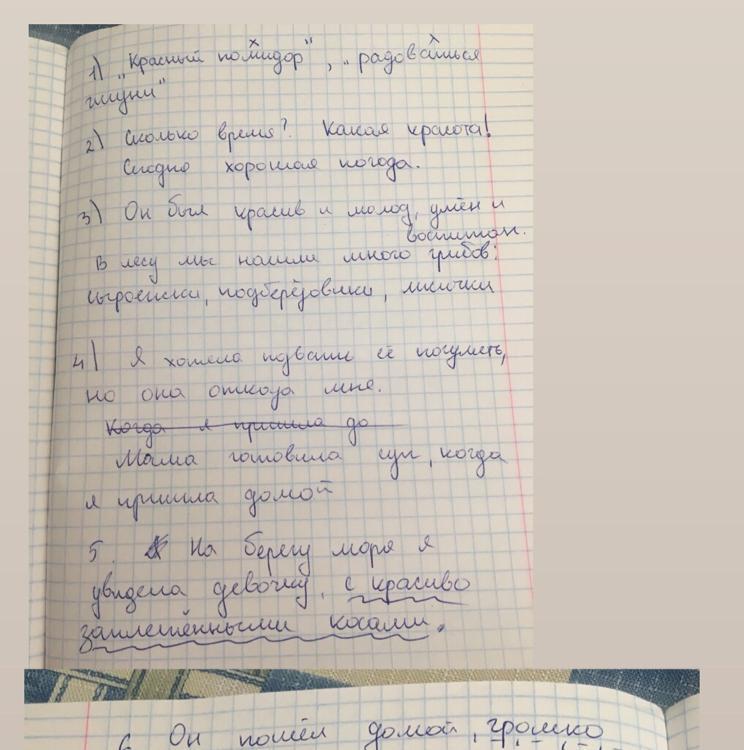 1) „Красный помидор", „радоваться
жизни"
2) Сколько время? Какая красота!
Сегодня хорошая погода.
3) Он был красив и молод, умён и
воспитан.
В лесу мы нашли много грибов:
сыроежки, подберёзовики, лисички
4) Я хотела позвать её погулять,
но она отказа мне.
Когда я пришла до
Мама готовила суп, когда
я пришла домой
5. На берегу моря я
увидела девочку, с красиво
заплетёнными косами.
6. Он пошёл домой, громко